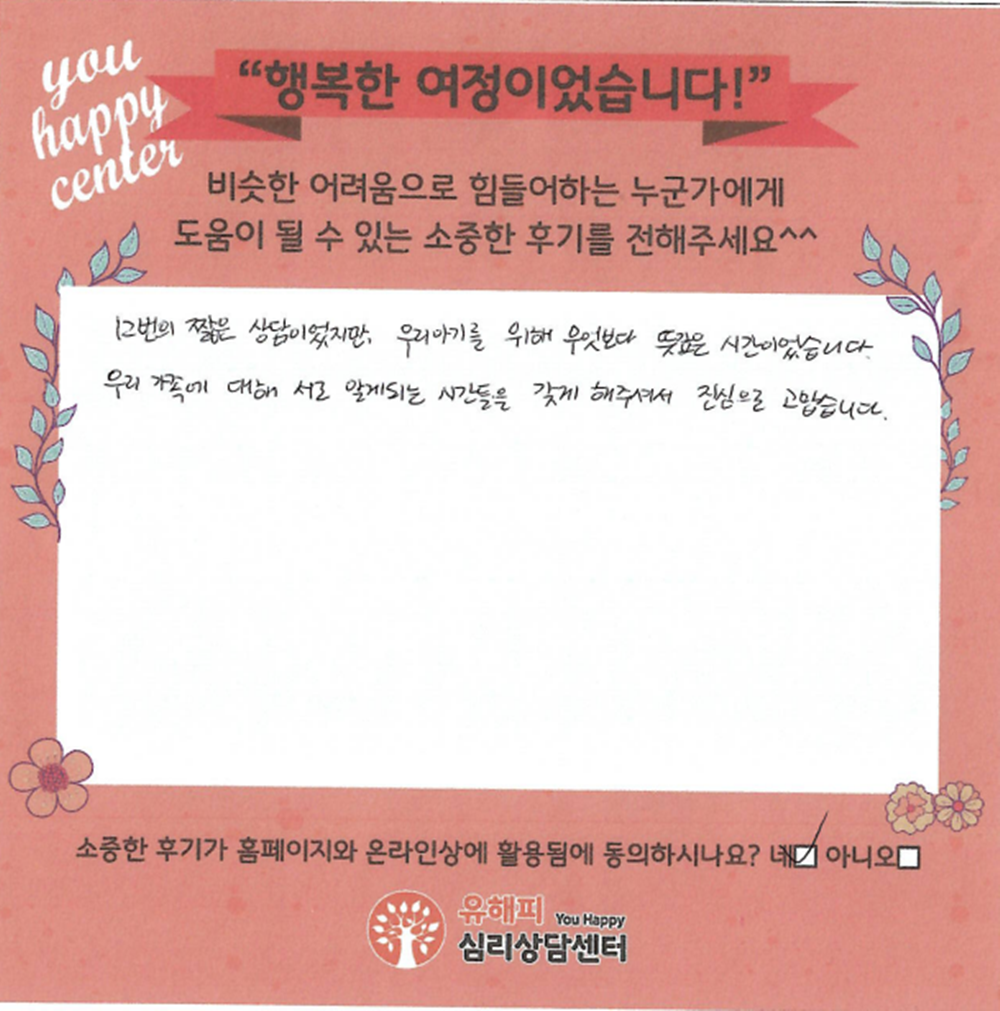 you
happy
center
“행복한 여정이었습니다!”
비슷한 어려움으로 힘들어하는 누군가에게
도움이 될 수 있는 소중한 후기를 전해주세요^^
12번의 짧은 상담이었지만, 우리아기를 위해 무엇보다 뜻깊은 시간이었습니다.
우리 가족에 대해 서로 알게되는 시간들을 갖게 해주셔서 진심으로 고맙습니다.
소중한 후기가 홈페이지와 온라인상에 활용됨에 동의하시나요? 네 아니오
유해피 You Happy
심리상담센터